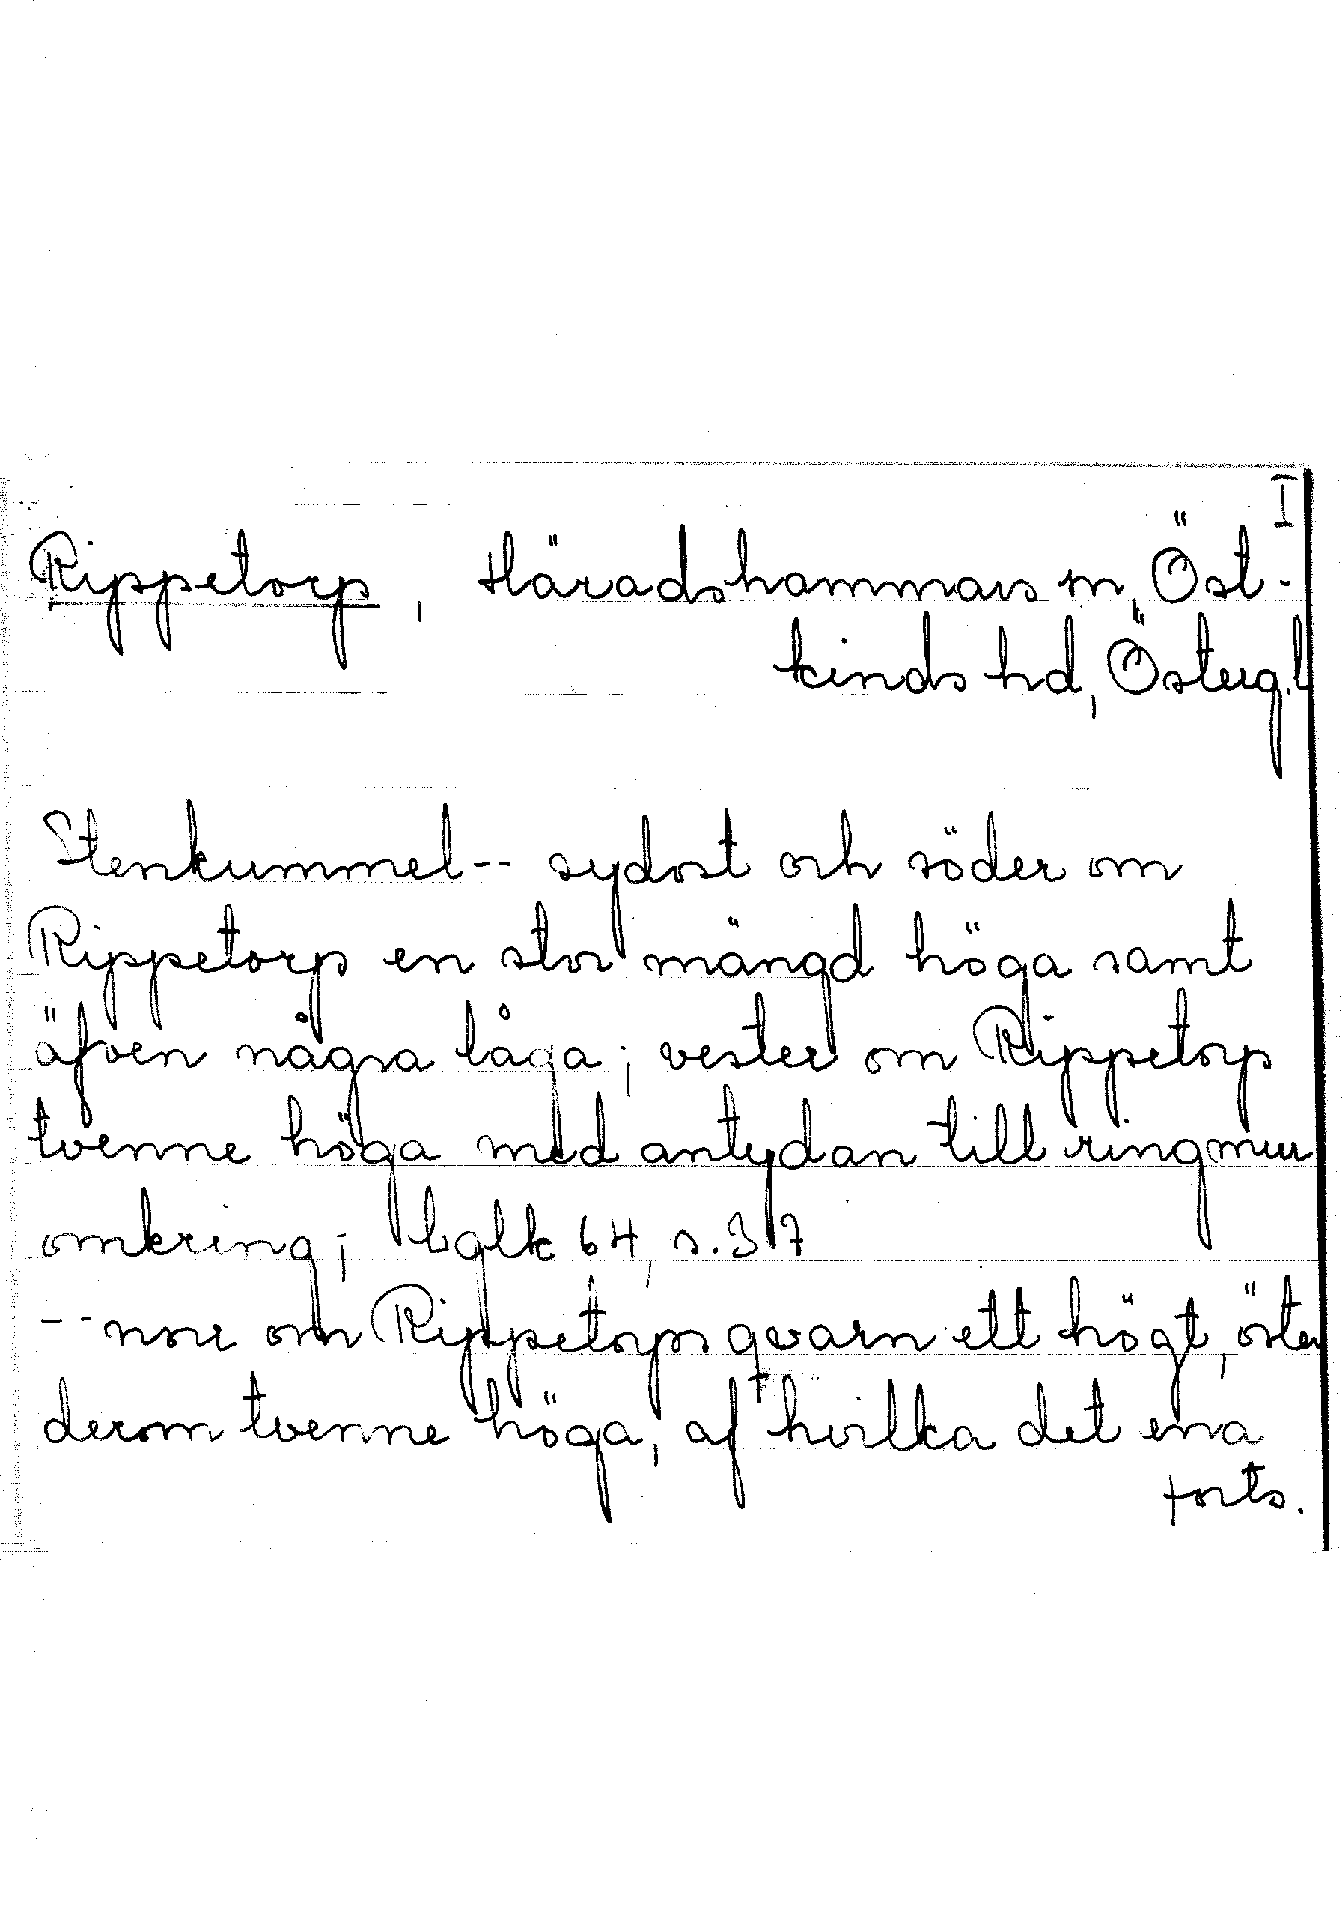 I
Rippetorp, Häradshammars sn, Öst-
kinds hd, Österg.l
Stenkummel-- sydost och söder om
Rippetorp en stor mängd höga samt
äfven några låga; vester om Rippetorp
tvenne höga med antydan till ringmur
omkring; bglk 64, s. 37
-- norr om Rippetorps qvarn ett högt, öster
derom tvenne höga, af hvilka det ena
forts.